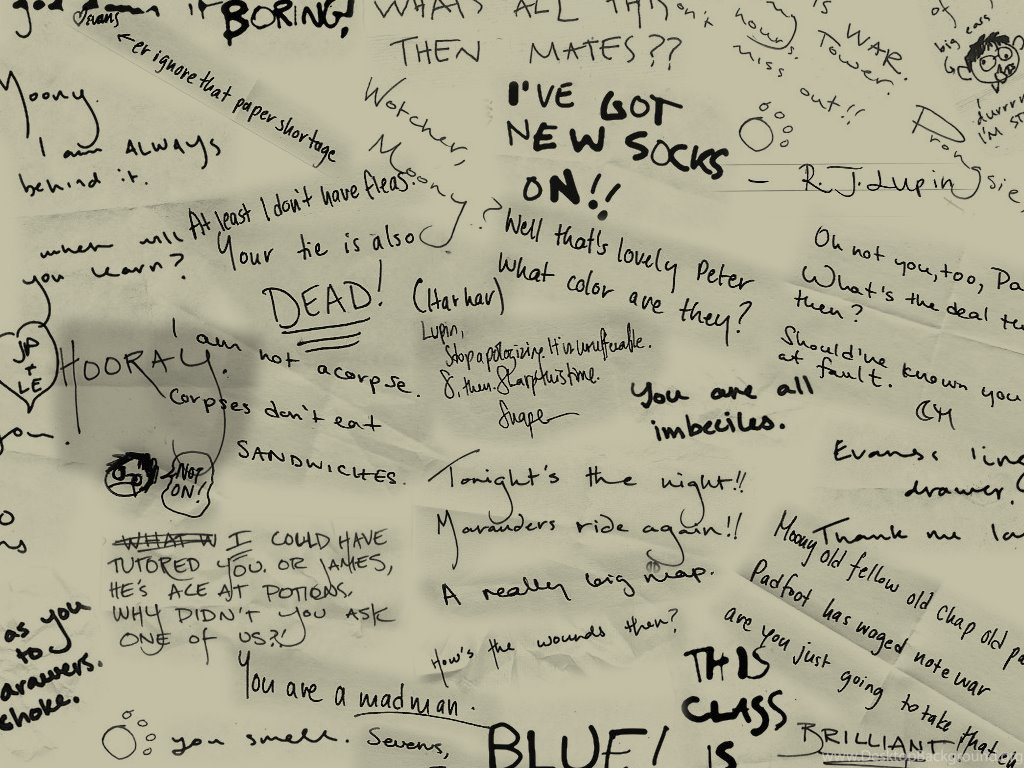 BORING!
WHAT'S ALL THIS
THEN MATES??
evans
←er ignore that paper shortage
hours.
miss
WAR.
Tower.
out!!
of
big ears
Moony.
I am ALWAYS
behind it.
when will
you learn?
Wotcher,
Moony?
I'VE GOT
NEW SOCKS
ON!!
Prongs
— R.J. Lupin
At least I don't have fleas.
Your tie is also
DEAD!
(Har har)
Well that's lovely Peter
What color are they?
Oh not you, too,
What's the deal
then?
Should've known you
at fault.
JP
+
LE
HOORAY.
I am not a corpse.
Corpses don't eat
SANDWICHES.
Lupin,
Stop apologizing. It is unaffuable.
Snape
You are all
imbeciles.
Evans'
drawer.
Thank me
you.
NOT
ON!
Tonight's the night!!
Marauders ride again!!
A really big map.
How's the wounds then?
WHAT W I COULD HAVE
TUTORED YOU. OR JAMES,
HE'S ACE AT POTIONS.
WHY DIDN'T YOU ASK
ONE OF US?!
Moony old fellow old chap old
Padfoot has waged note war
are you just going to take that
as you
to
drawers.
choke.
You are a madman.
you smell.
Severus,
BLUE!
THIS
CLASS
IS
BRILLIANT
www.DesktopBackground.org